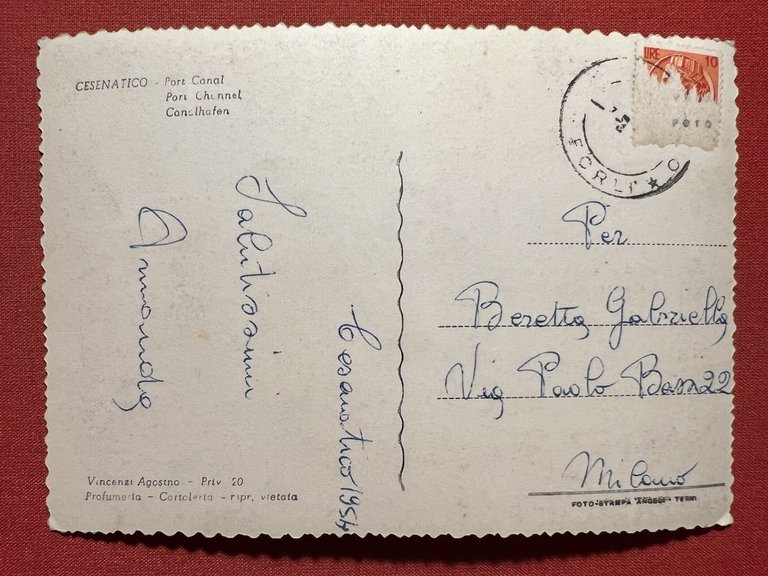 CESENATICO - Port Canal
Port Channel
Canalhafen
Salutissimi
Armanda
Cesenatico 1954
Vincenzi Agostno - Priv 20
Profumeria - Cartoleria - ripr. vietata
LIRE 10
POTO
FORLI
Per
Beretta Gabriella
Via Paolo Bassi 22
Milano
FOTO-STAMPA ANGELI - TERNI